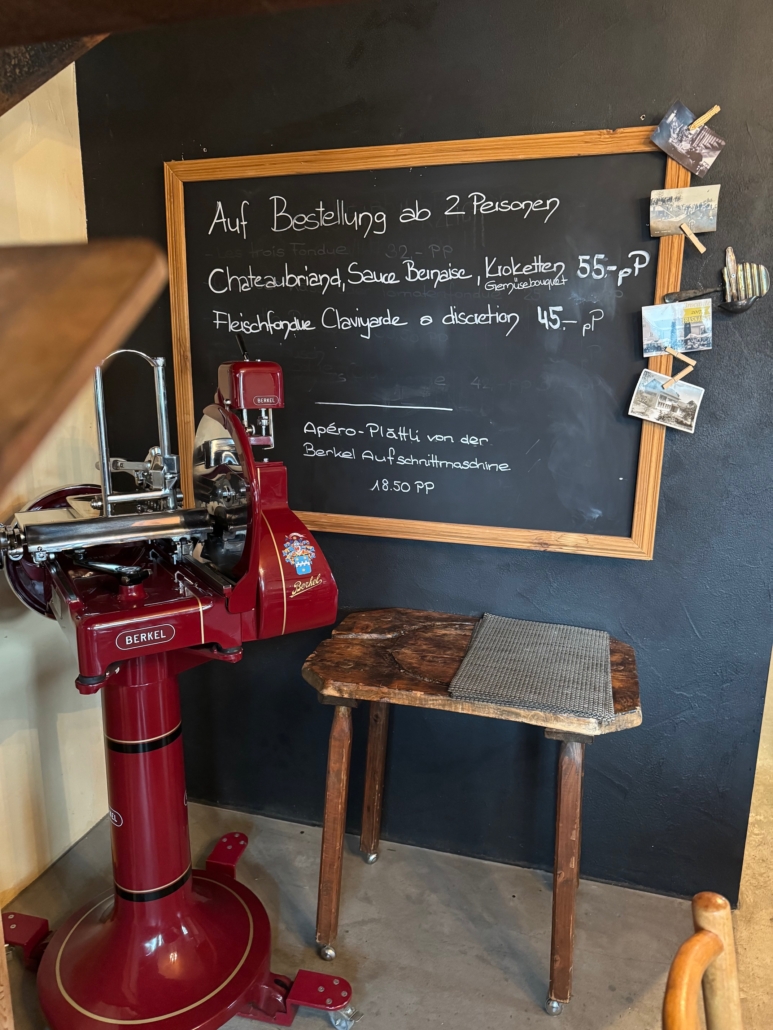 Auf Bestellung ab 2 Personen
Les trois Fondue 32.- PP
Chateaubriand, Sauce Bernaise, Kroketten 55.- pP
Gemüsebouquet
Fleischfondue Claviyarde a discretion 45.- pP
Apéro-Plättli von der
Berkel Aufschnittmaschine
18.50 PP
BERKEL
Berkel
BERKEL